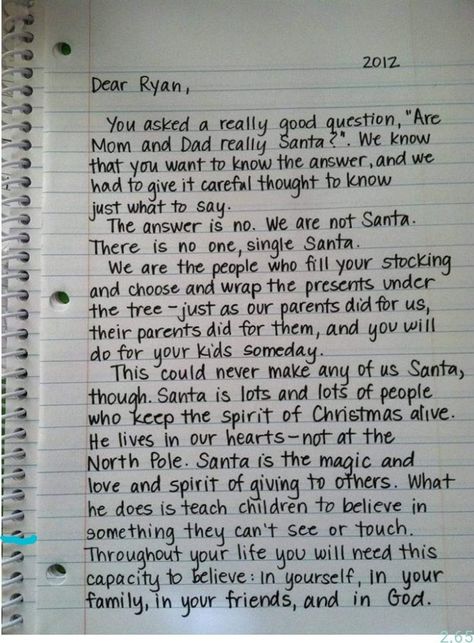 2012
Dear Ryan,
You asked a really good question, "Are
Mom and Dad really Santa?". We know
that you want to know the answer, and we
had to give it careful thought to know
just what to say.
The answer is no. We are not Santa.
There is no one, single Santa.
We are the people who fill your stocking
and choose and wrap the presents under
the tree - just as our parents did for us,
their parents did for them, and you will
do for your kids someday.
This could never make any of us Santa,
though. Santa is lots and lots of people
who keep the spirit of Christmas alive.
He lives in our hearts - not at the
North Pole. Santa is the magic and
love and spirit of giving to others. What
he does is teach children to believe in
something they can't see or touch.
Throughout your life you will need this
capacity to believe: in yourself, in your
family, in your friends, and in God.
2.65